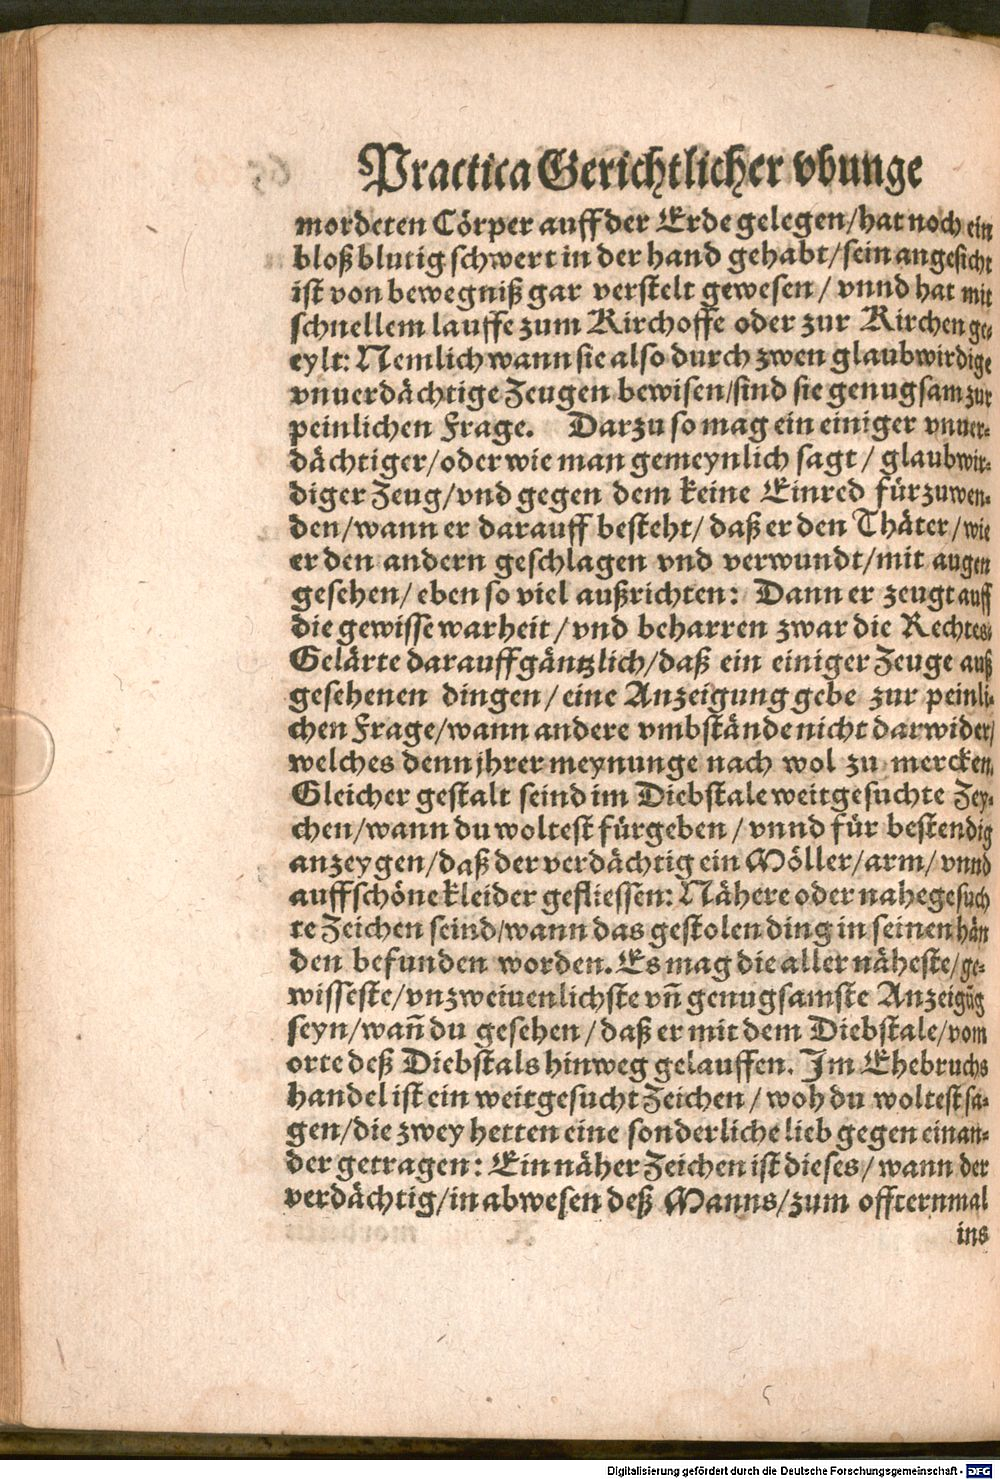 Practica Gerichtlicher vbunge
mordeten Cörper auff der Erde gelegen/hat noch ein
bloß blutig schwert in der hand gehabt/sein angesicht
ist von bewegniß gar verstelt gewesen/ vnnd hat mit
schnellem lauffe zum Kirchoffe oder zur Kirchen ge-
eylt: Nemlich wann sie also durch zwen glaubwirdige
vnuerdächtige Zeugen bewisen/sind sie genugsam zur
peinlichen Frage. Darzu so mag ein einiger vnuer-
dächtiger/oder wie man gemeynlich sagt/ glaubwir-
diger Zeug/vnd gegen dem keine Einred fürzuwen-
den/wann er darauff besteht/ daß er den Thäter/wie
er den andern geschlagen vnd verwundt/mit augen
gesehen/ eben so viel außrichten: Dann er zeugt auff
die gewisse warheit/ vnd beharren zwar die Rechtes-
Gelärte darauff gäntzlich/daß ein einiger Zeuge auß
gesehenen dingen/ eine Anzeigung gebe zur peinli-
chen Frage/wann andere vmbstände nicht darwider/
welches denn jhrer meynunge nach wol zu mercken.
Gleicher gestalt seind im Diebstale weitgesuchte Zey-
chen/wann du woltest fürgeben/ vnnd für bestendig
anzeygen/daß der verdächtig ein Möller/arm/ vnnd
auff schöne kleider gefliessen: Nähere oder nahegesuch
te Zeichen seind/wann das gestolen ding in seinen hän
den befunden worden. Es mag die aller näheste/ge-
wisseste/vnzweiuenlichste vñ genugsamste Anzeigũg
seyn/wañ du gesehen/daß er mit dem Diebstale/vom
orte deß Diebstals hinweg gelauffen. Im Ehebruchs
handel ist ein weitgesucht Zeichen/ woh du woltest sa-
gen/die zwey hetten eine sonderliche lieb gegen einan-
der getragen: Ein näher Zeichen ist dieses/ wann der
verdächtig/in abwesen deß Manns/zum offternmal
ins
Digitalisierung gefördert durch die Deutsche Forschungsgemeinschaft - DFG